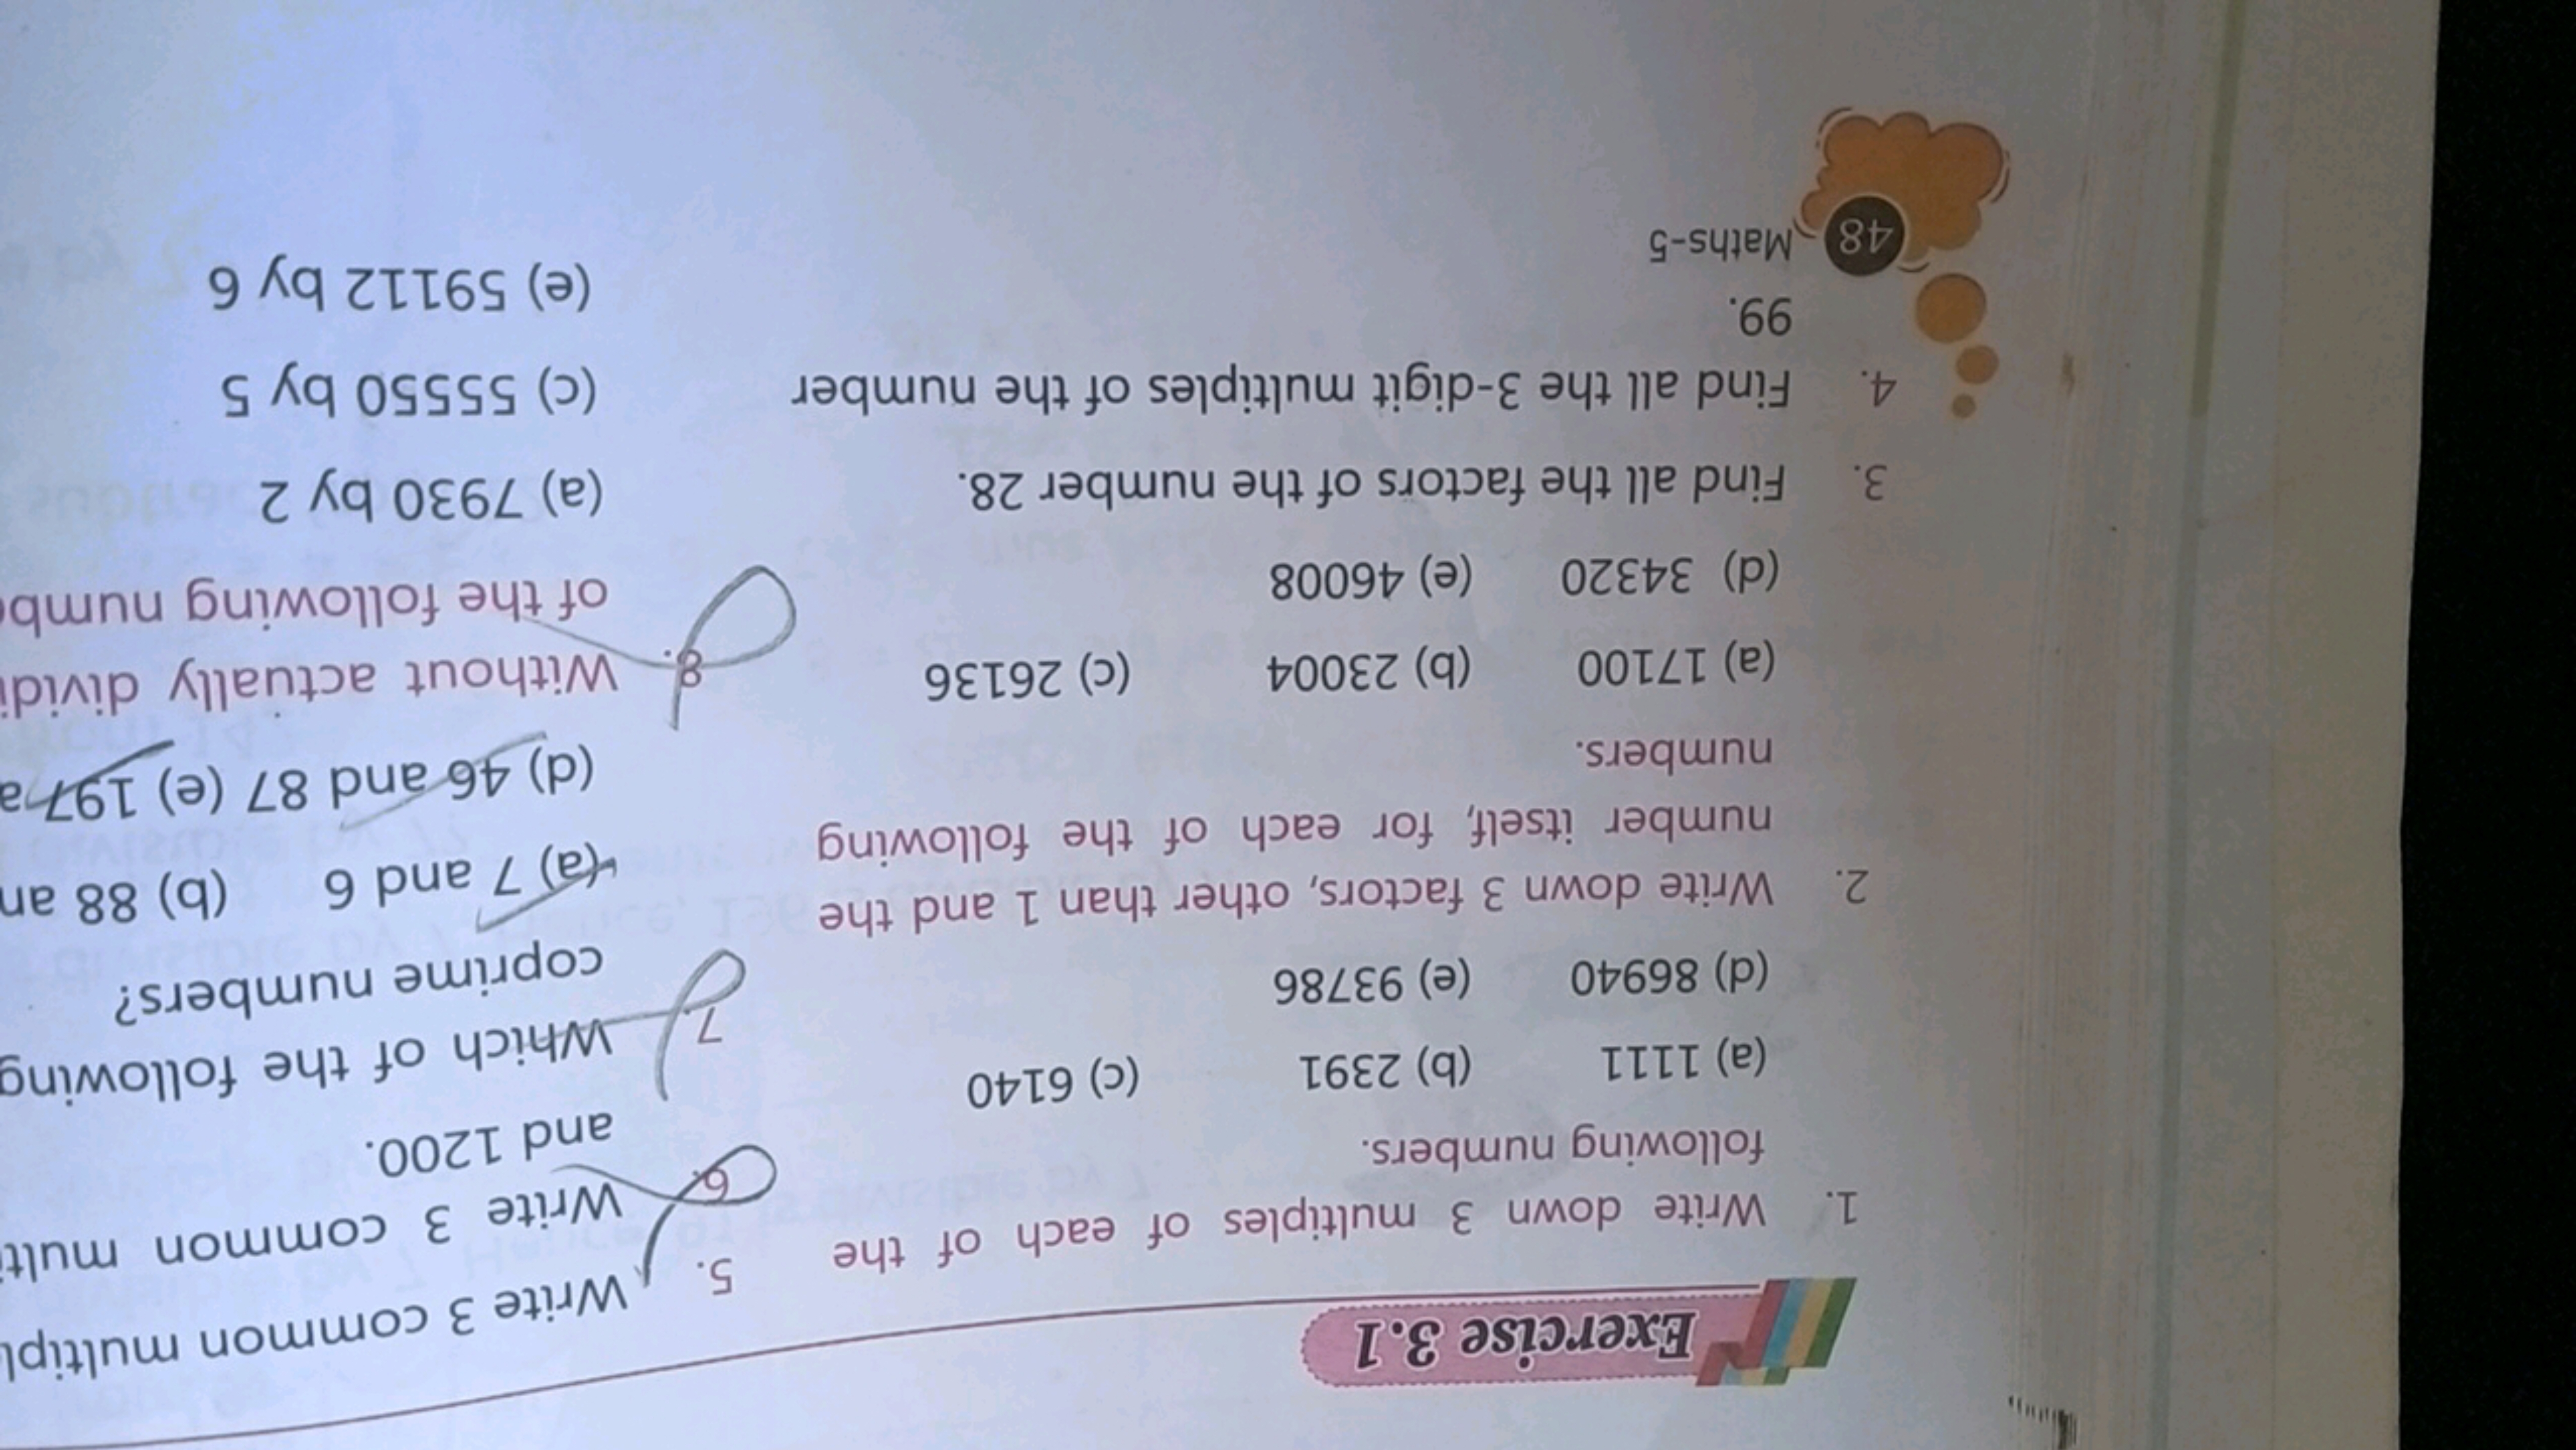 Exercise 3.1
1. Write down 3 multiples of each of the
following numbers.
(a) 1111 (b) 2391 (c) 6140
(d) 86940 (e) 93786
2. Write down 3 factors, other than 1 and the
number itself, for each of the following
numbers.
(a) 17100 (b) 23004 (c) 26136
(d) 34320 (e) 46008
3. Find all the factors of the number 28.
4. Find all the 3-digit multiples of the number
99.
48 Maths-5
5. Write 3 common
6. Write 3 common
and 1200.
7. Which of the following
coprime numbers?
(a) 7 and 6 (b) 88
(d) 46 and 87 (e) 197
8. Without actually
of the following
(a) 7930 by 2
(c) 55550 by 5
(e) 59112 by 6